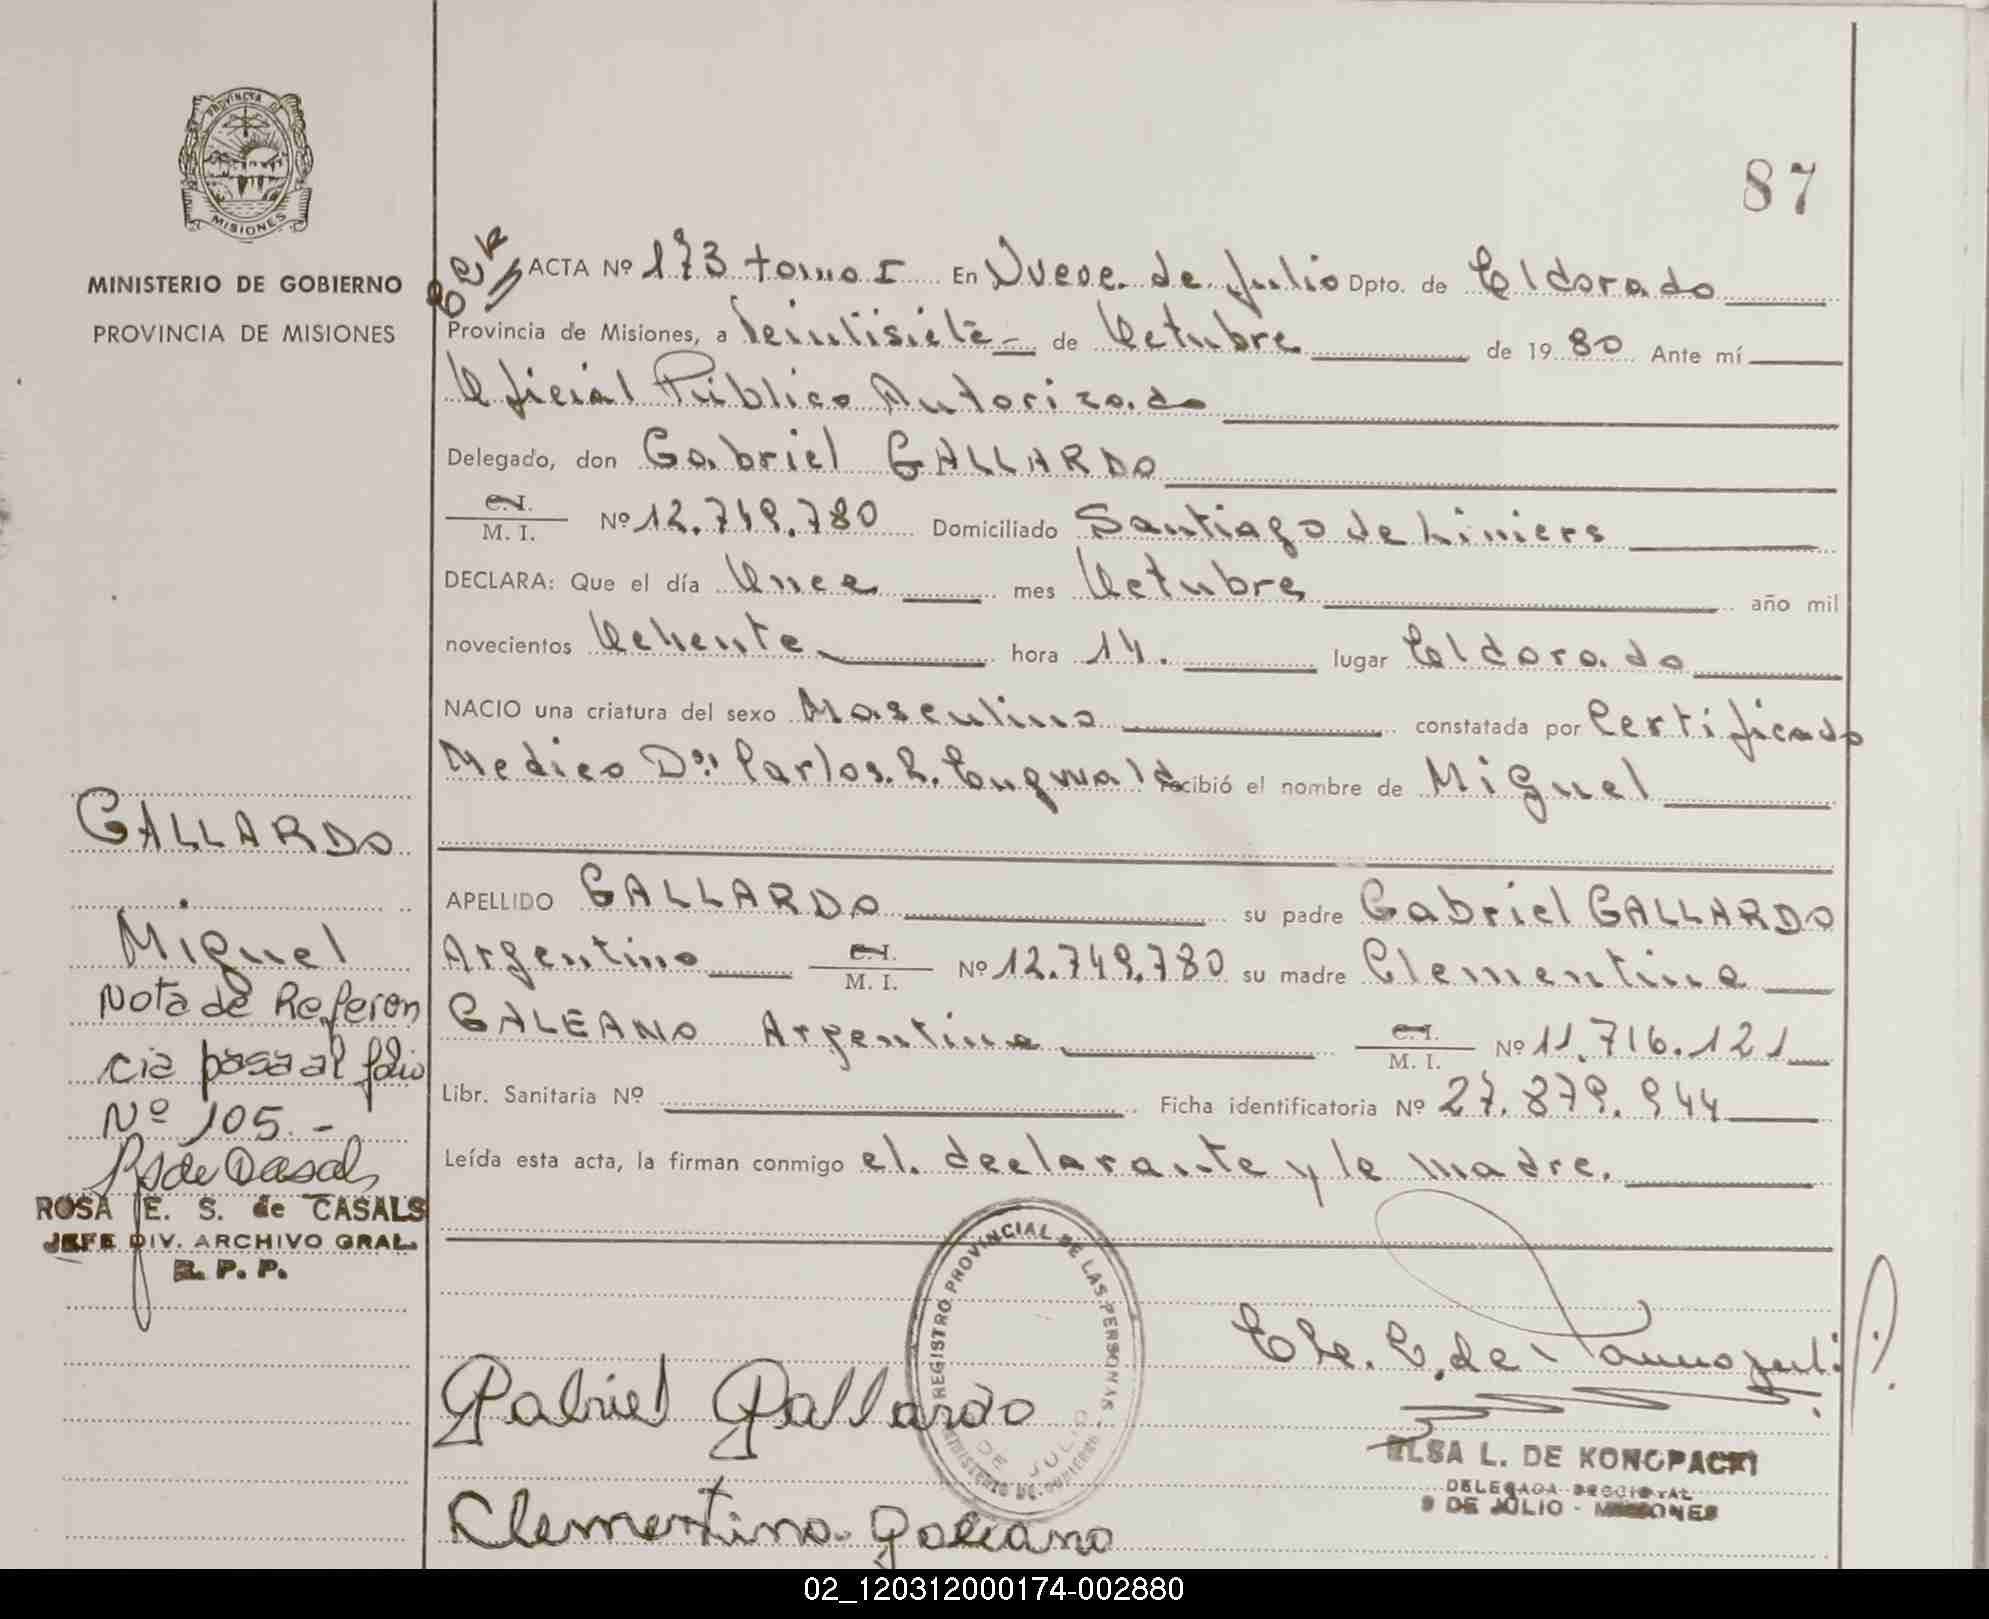 PROVINCIA DE
MISIONES
MINISTERIO DE GOBIERNO
PROVINCIA DE MISIONES
GALLARDO
Miguel
Nota de Referen
cia pasa al folio
Nº 105.-
ROSA E. S. de CASALS
JEFE DIV. ARCHIVO GRAL.
R. P. P.
87
ACTA Nº 173 tomo I En Nueve de Julio Dpto. de Eldorado
Provincia de Misiones, a Veintisiete de Octubre de 1980 Ante mí
Oficial Público Autorizado
Delegado, don Gabriel GALLARDO
C.I.
M. I. Nº 12.749.780 Domiciliado Santiago de Liniers
DECLARA: Que el día Once mes Octubre año mil
novecientos Ochenta hora 14. lugar Eldorado
NACIO una criatura del sexo Masculino constatada por Certificado
Medico Dr. Carlos. R. Engwald recibió el nombre de Miguel
APELLIDO GALLARDO su padre Gabriel GALLARDO
Argentino C.I.
M. I. Nº 12.749.780 su madre Clementina
GALEANO Argentina C.I.
M. I. Nº 11.716.121
Libr. Sanitaria Nº Ficha identificatoria Nº 27.879.944
Leída esta acta, la firman conmigo el declarante y la madre.
REGISTRO PROVINCIAL DE LAS PERSONAS
DE JULIO
MINISTERIO DE GOBIERNO
Gabriel Gallardo
Clementina Galeano
ELSA L. DE KONOPACKI
DELEGADA SECCIONAL
9 DE JULIO - MISIONES
02_120312000174-002880